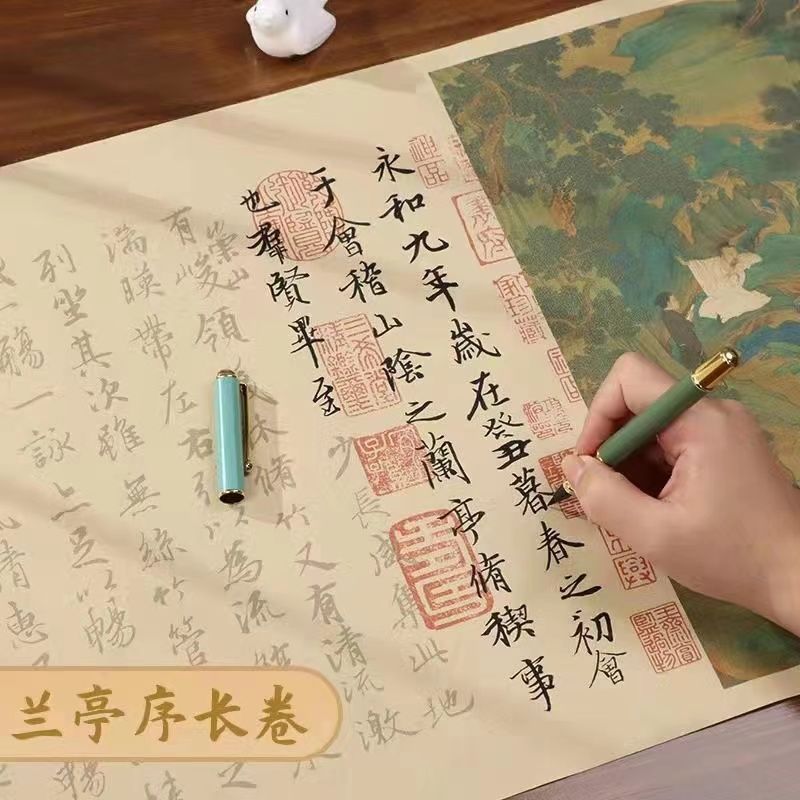 永和九年歲在癸丑暮春之初會
于會稽山陰之蘭亭脩稧事
也羣賢畢至少長咸集此地
有崇山峻領林脩竹又有清流激
湍暎帶左右引以為流
列坐其次雖無絲竹管之
一觴一詠亦足以暢
清惠
暢
兰亭序长卷